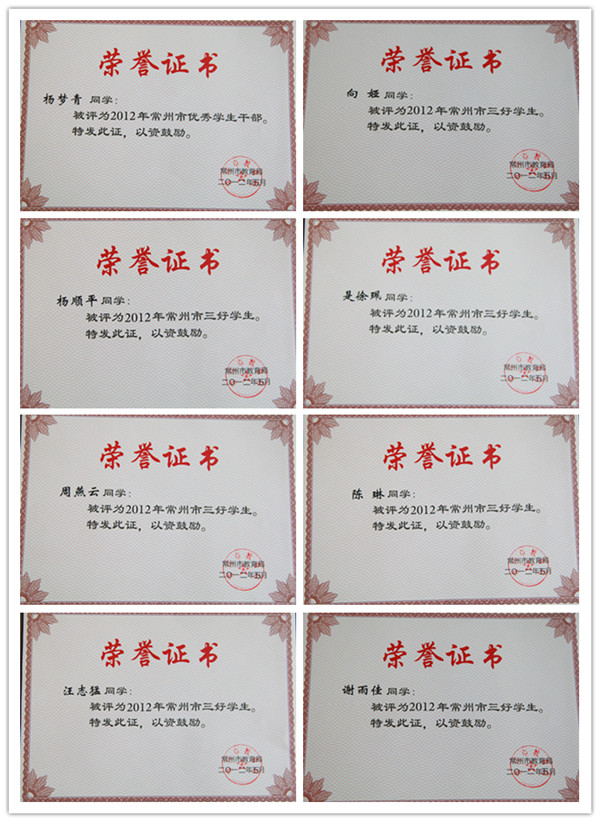 荣誉证书
杨梦青 同学：
被评为2012年常州市优秀学生干部。
特发此证，以资鼓励。
常州市教育局
二〇一二年五月
荣誉证书
向 娅 同学：
被评为2012年常州市三好学生。
特发此证，以资鼓励。
常州市教育局
二〇一二年五月
荣誉证书
杨顺平 同学：
被评为2012年常州市三好学生。
特发此证，以资鼓励。
常州市教育局
二〇一二年五月
荣誉证书
是徐珮 同学：
被评为2012年常州市三好学生。
特发此证，以资鼓励。
常州市教育局
二〇一二年五月
荣誉证书
周燕云 同学：
被评为2012年常州市三好学生。
特发此证，以资鼓励。
常州市教育局
二〇一二年五月
荣誉证书
陈 琳 同学：
被评为2012年常州市三好学生。
特发此证，以资鼓励。
常州市教育局
二〇一二年五月
荣誉证书
汪志猛 同学：
被评为2012年常州市三好学生。
特发此证，以资鼓励。
常州市教育局
二〇一二年五月
荣誉证书
谢雨佳 同学：
被评为2012年常州市三好学生。
特发此证，以资鼓励。
常州市教育局
二〇一二年五月